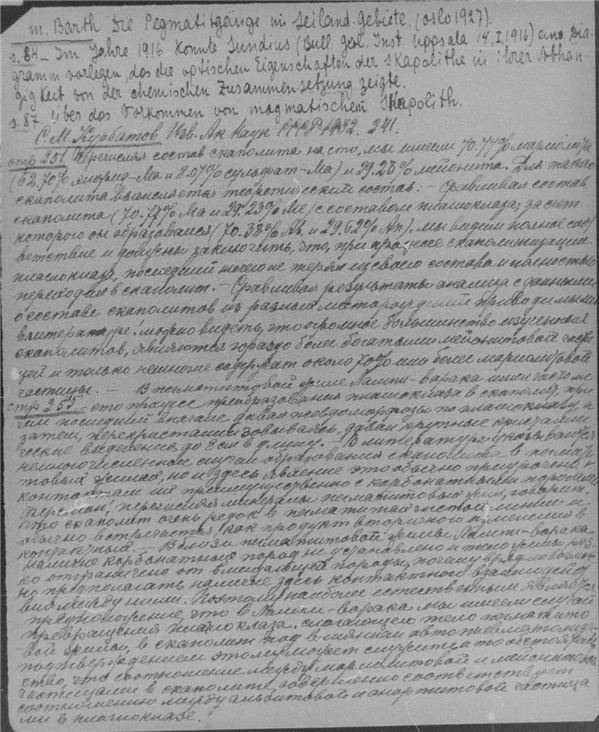 m. Barth Die Pegmatitgänge im Seiland-Gebiete. (Oslo 1927).
s. 84 – Im Jahre 1916 konnte Sundius (Bull. geol. Inst. Uppsala 14, I, 1916) eine Dia-
gramm vorlegen, das die optischen Eigenschaften der Skapolithe in ihrer Abhän-
gigkeit von der chemischen Zusammensetzung zeigte.
s. 87 über das Vorkommen von magmatischem Skapolith.
С. М. Курбатов Изв. Ак Наук СССР 1932. 241.
стр 251 Перечисляя состав скаполита на сто, мы имеем 70.77% мариалита
(62.70% хлорид-Ma и 8.07% сульфат-Ma) и 29.23% мейонита. Для такого
скаполита вычисляется теоретический состав. – Сравнивая состав
скаполита (70.77% Ma и 29.23% Me) с составом плагиоклаза, за счет
которого он образовался (70.38% Ab и 29.62% An), мы видим полное соо
ветствие и должны заключить, что, при процессе скаполитизации
плагиоклаза, последний ничего не терял из своего состава и полностью
переходил в скаполит. – Сравнивая результаты анализа с данными
о составе скаполитов из разных месторождений, приводимыми
в литературе, можно видеть, что огромное большинство изученных
скаполитов, являются гораздо более богатыми мейонитовой части
цей и только немногие содержат около 70% или более мариалитовой
частицы. – В пегматитовой жиле Лямки-варака имел место
стр 259 процесс преобразования плагиоклаза в скаполит, при
чем последний вначале давал псевдоморфозы по плагиоклазу, а
затем, перекристаллизовываясь, давал крупные кристалли
ческие выделения до 8 см в длину. – В литературе указываются
немногочисленные случаи образования скаполита в пегма-
товых жилах, но и здесь явление это обычно приурочено к
контактам их преимущественно с карбонатными породами.
Ферсман, перечисляя минералы пегматитовых жил, говорит,
что скаполит очень редок в пегматитах чистой линии и
обычно встречается как продукт вторичного изменения в
контактных. – Вблизи пегматитовой жилы Лямки-варака
наличие карбонатных пород не установлено и тело жилы рез
ко отграничено от вмещающей породы, почему вряд ли возмож
но предполагать наличие здесь контактного взаимодейст
вия между ними. Поэтому наиболее естественным является
предположение, что в Лямки-варака мы имеем случай
превращения плагиоклаза, слагающего тело пегматито
вой жилы, в скаполит под влиянием автопневматолиза
подтверждением этому может служить то обстоятель
ство, что соотношение между мариалитовой и мейонитовой
частицами в скаполите совершенно соответствует
соотношению между альбитовой и анортитовой частица
ми в плагиоклазе.